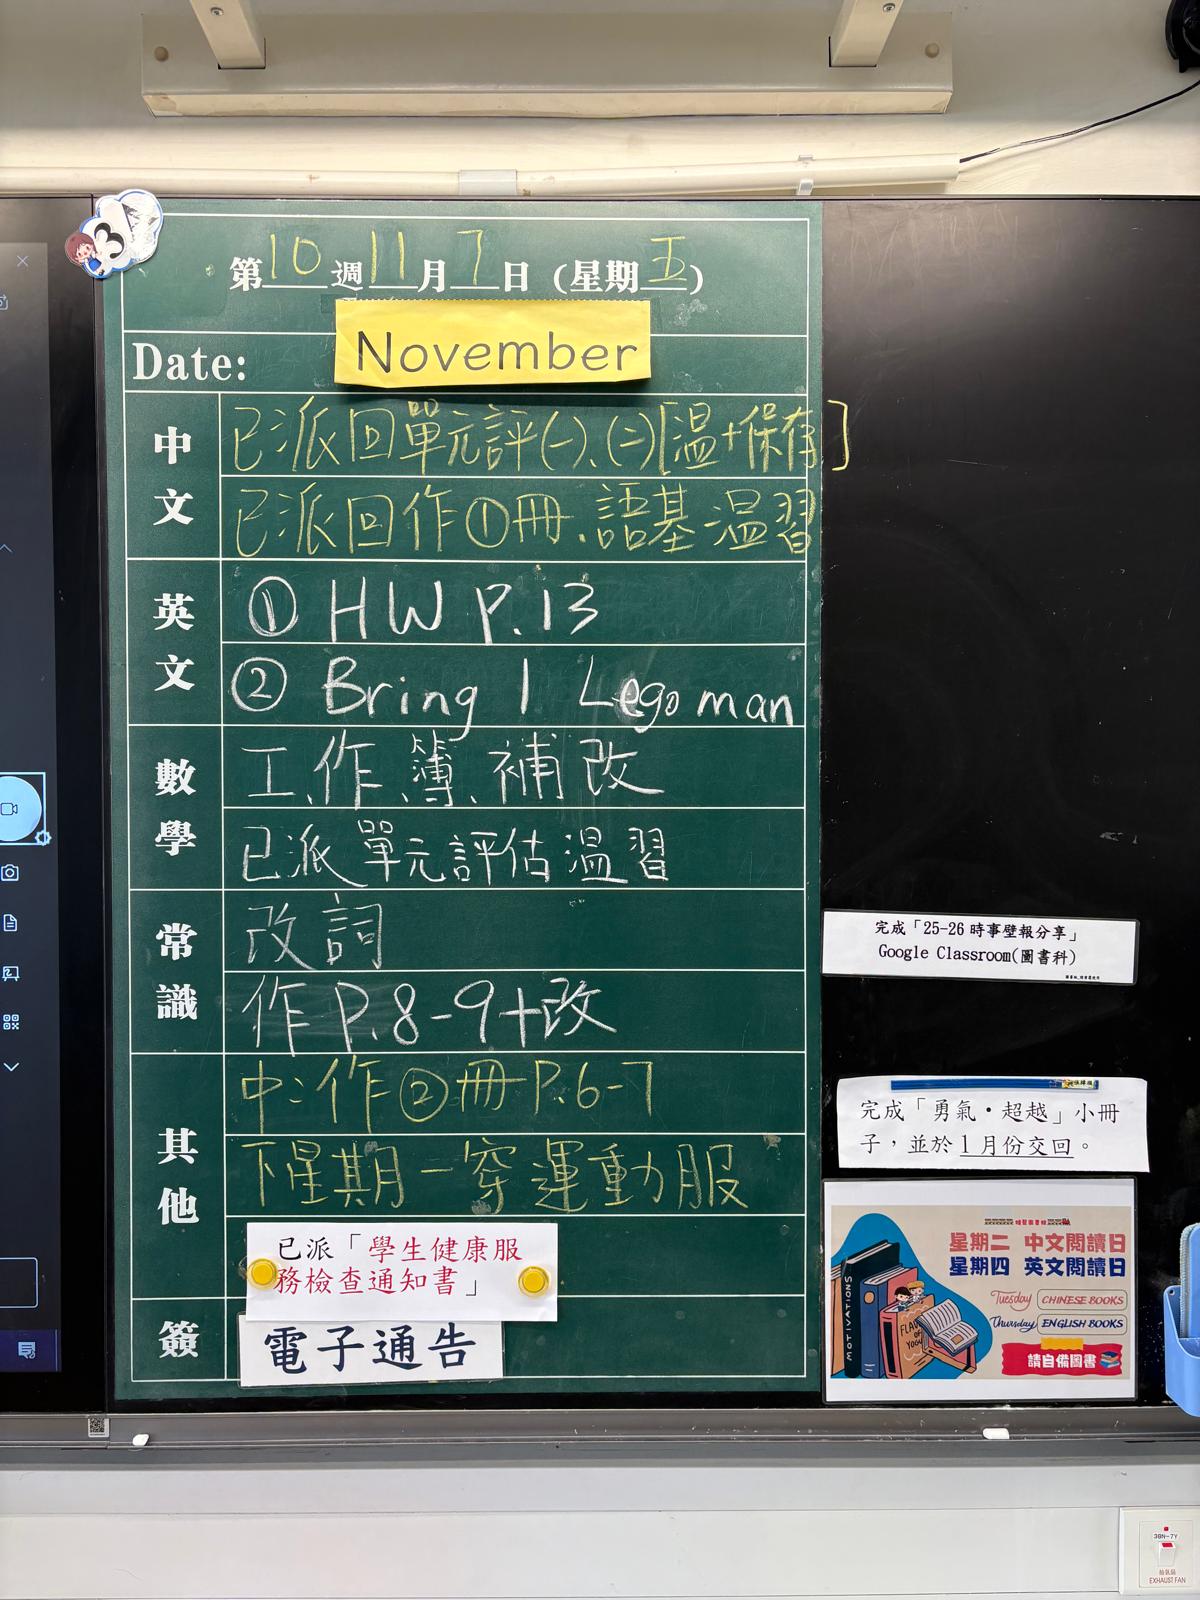 3A
第10週11月7日(星期五)
November
Date:
中文
已派回單元評(一)、(二)[温+保存]
已派回作①冊、語基温習
英文
① HW P.13
② Bring 1 Lego man
數學
工、作、簿、補改
已派單元評估温習
常識
改詞
作P.8-9+改
其他
中:作②冊P.6-7
下星期一穿運動服
已派「學生健康服
務檢查通知書」
簽
電子通告
完成「25-26 時事壁報分享」
Google Classroom(圖書科)
完成「勇氣・超越」小冊
子，並於1月份交回。
星期二 中文閱讀日
星期四 英文閱讀日
Tuesday CHINESE BOOKS
Thursday ENGLISH BOOKS
請自備圖書
MOTIVATIONS
3BN-7Y
抽氣扇
EXHAUST FAN